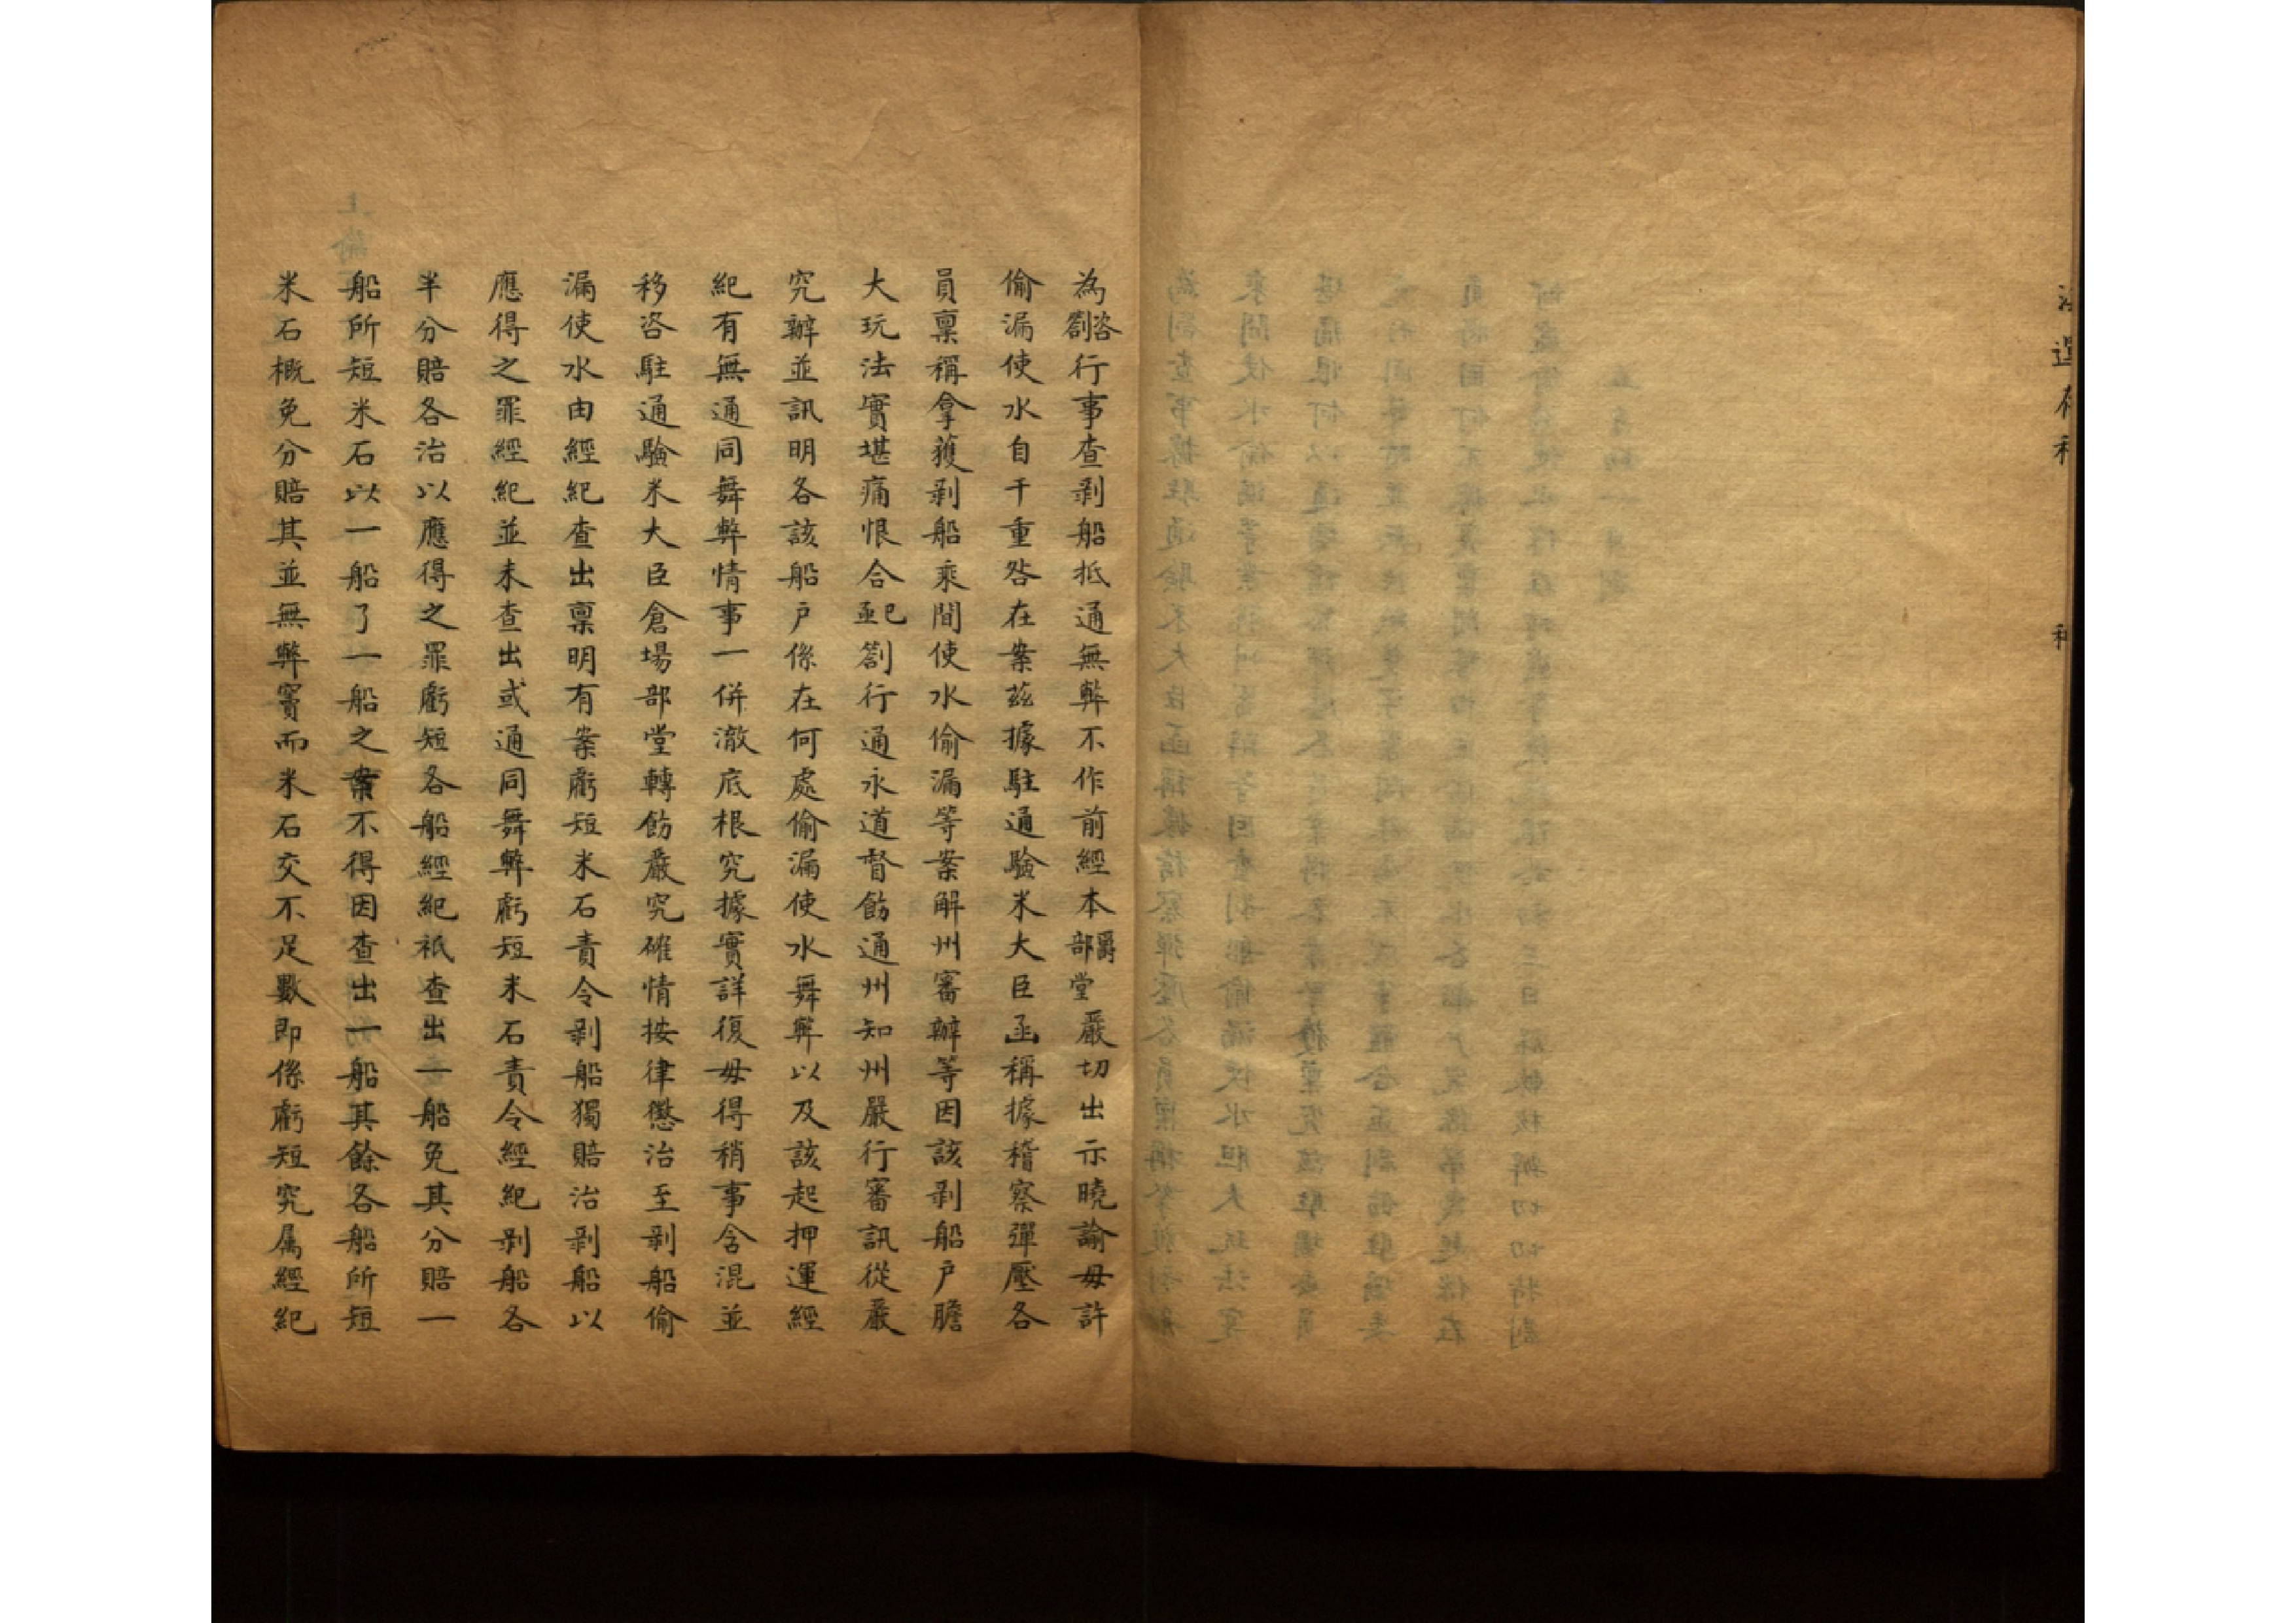 為咨劄行事查剥船抵通無弊不作前經本爵部堂嚴切出示曉諭毋許
偷漏使水自干重咎在案兹據駐通驗米大臣函稱據稽察彈壓各
員稟稱拿獲剥船乘間使水偷漏等案解州審辦等因該剥船户膽
大玩法實堪痛恨合亟巳劄行通永道督飭通州知州嚴行審訊從嚴
究辦並訊明各該船户係在何處偷漏使水舞弊以及該起押運經
紀有無通同舞弊情事一併澈底根究據實詳復毋得稍事含混並
移咨駐通驗米大臣倉場部堂轉飭嚴究確情按律懲治至剥船偷
漏使水由經紀查出稟明有案虧短米石責令剥船獨賠治剥船以
應得之罪經紀並未查出或通同舞弊虧短米石責令經紀剥船各
半分賠各治以應得之罪虧短各船經紀祇查出一船免其分賠一
船所短米石以一船了一船之案不得因查出一船其餘各船所短
米石概免分賠其並無弊竇而米石交不足數即係虧短究属經紀